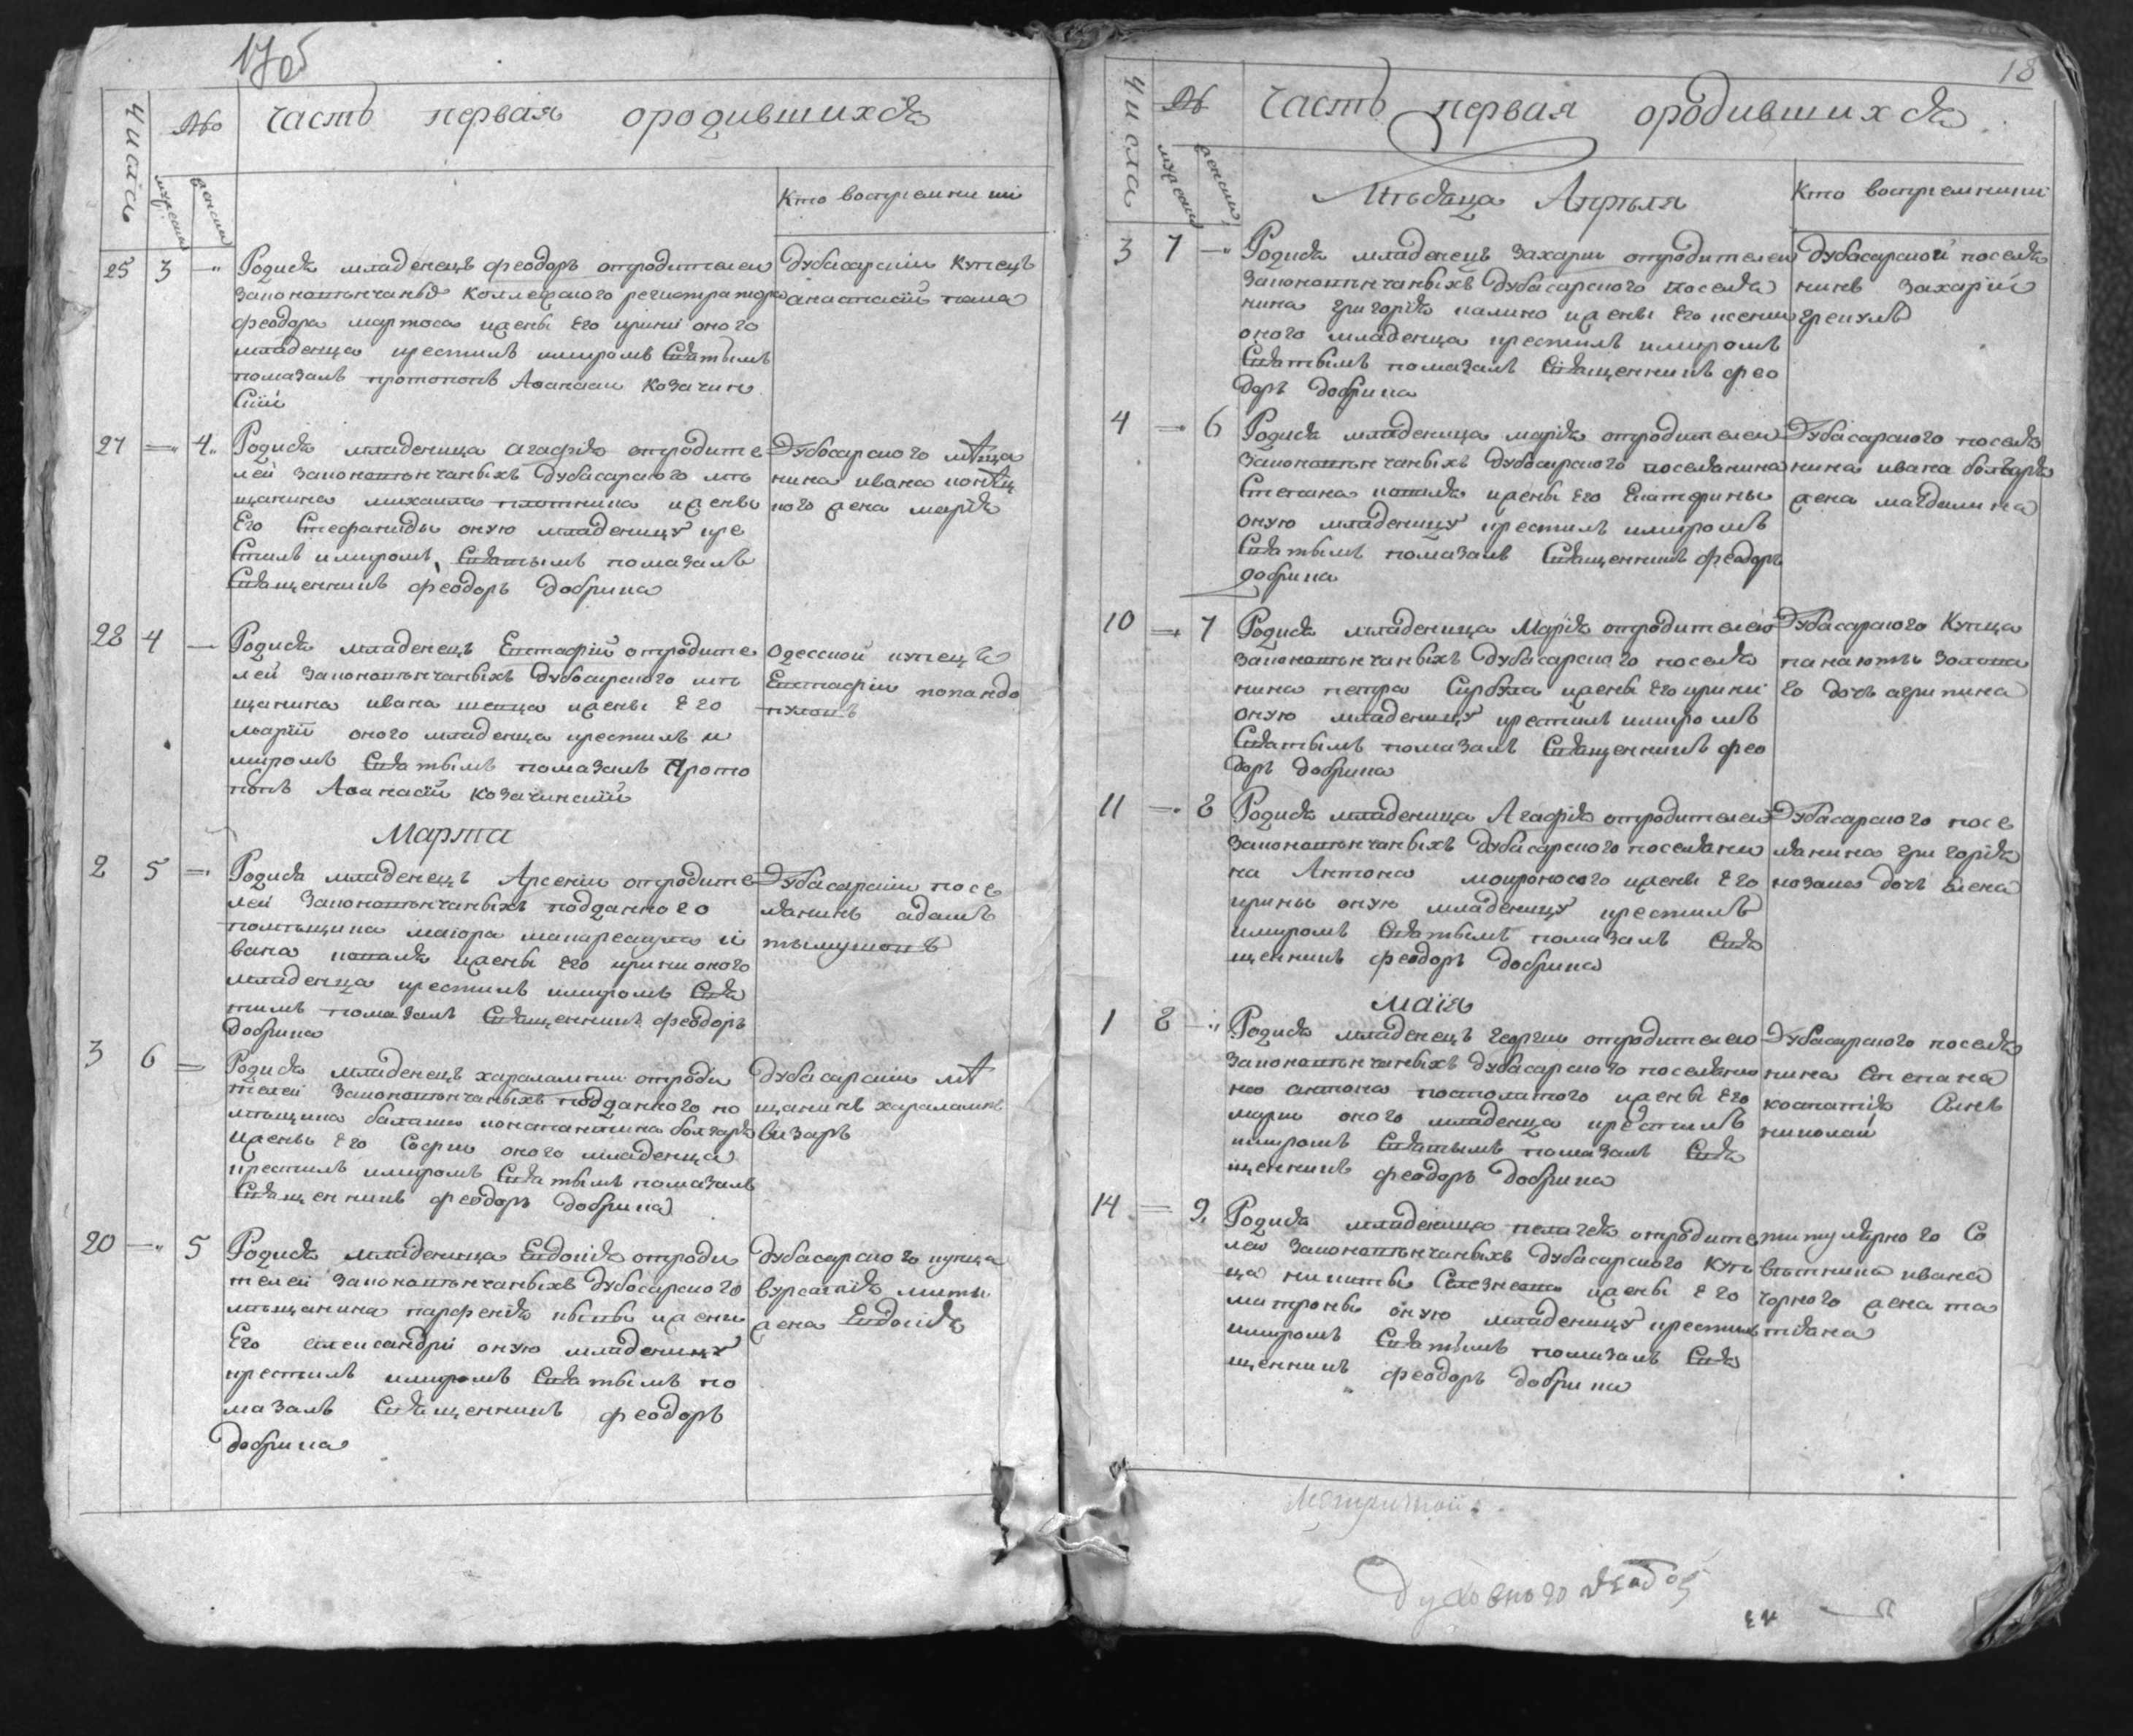 17об
Числа
№
Часть первая ородившихся
мужеска
женска
Кто восприемники
25 3 —
Родися младенецъ феодоръ отродителей
законовѣнчаныхъ коллежского регистратора
феодора мартоса ижены Его ирини оного
младенца крестилъ имиромъ Святымъ
помазалъ протопопъ Аѳанасии Козачин
Скїй
Дубасарскии Купецъ
анастасїй
27 — 4
Родися младеница агафїя отродите
лей законовѣнчаныхъ Дубасарского мѣ
щанина михаила плотника ижены
Его Стефаниды оную младеницу кре
Стилъ имиромъ Святымъ помазалъ
Священникъ феодоръ Добрика
Дубосарского мѣща
нина ивана
ного жена марїя
28 4 —
Родися младенецъ Евстафїй отродите
лей законовѣнчаныхъ Дубосарского мѣ
щанина ивана шевца ижены Его
марїй оного младенца крестилъ и
миромъ Святымъ помазалъ Прото
попъ Аѳанасїй козачинскїй
Одесской купецъ
Евстафїи попандо
пуловъ
Марта
2 5 —
Родися младенецъ Арсении отродите
лей Законовѣнчаныхъ подданного
помѣщика маиора макарескула и
вана коваля ижены Его ирини оного
младенца крестилъ имиромъ Свя
тимъ помазалъ Священникъ феодоръ
Добрика
Дубасарскии посе
лянинъ адамъ
3 6 —
Родися младенецъ харалампии отроди
телей Законовѣнчаныхъ подданного по
мѣщика балаши константина болгаря
ижены Его Софии оного младенца
крестилъ имиромъ Святымъ помазалъ
Священникъ феодоръ Добрика
Дубасарскии мѣ
щанинъ харалампъ
визаръ
20 — 5
Родися младеница Евдокїя отроди
телей Законовѣнчаныхъ Дубосарского
мѣщанина парфенїя ижены
Его александри оную младеницу
крестилъ имиромъ Святымъ по
мазалъ Священникъ феодоръ
Добрика
Дубасарского купца
жена Евдокїя
18
Числа
№
Часть первая ородившихся
мужеска
женска
Мѣсяца Апрѣля
Кто восприемники
3 7 —
Родися младенецъ Захарии отродителей
Законовѣнчаныхъ Дубасарского поселя
нина григорїя калино ижены Его ксении
оного младенца крестилъ имиромъ
Святымъ помазалъ Священникъ фео
доръ Добрика
Дубасарской поселя
нинъ Захарїй
грекулъ
4 — 6
Родися младеница марїя отродителей
Законовѣнчаныхъ Дубосарского поселянина
Степана коваля ижены Его Екатерины
оную младеницу крестилъ имиромъ
Святымъ помазалъ Священникъ феодоръ
добрика
Дубасарского поселя
нина ивана болгаря
жена магдалина
10 — 7
Родися младеница Марїя отродителей
законовѣнчаныхъ Дубасарского поселя
нина петра Сырбула ижены Его ирини
оную младеницу крестилъ имиромъ
Святымъ помазалъ Священникъ фео
доръ Добрика
Дубасарского Купца
го дочь агрипина
11 — 8
Родися младеница Агафїя отродителей
Законовѣнчаныхъ Дубасарского поселяни
на Антона мокроносого ижены Его
ирины оную младеницу крестилъ
имиромъ Святымъ помазалъ Свя
щенникъ феодоръ Добрика
Дубасарского посе
лянина григорїя
дочь елена
маїя
1 8 —
Родися младенецъ георгии отродителей
Законовѣнчаныхъ Дубасарского поселяни
на антона постолатого ижены Его
марии оного младенца крестилъ
имиромъ Святымъ помазалъ Свя
щенникъ феодоръ Добрика
Дубасарского поселя
нина Степана
Сынъ
николай
14 — 9
Родися младеница пелагея отродите
лей Законовѣнчаныхъ Дубасарского куп
ца никиты Селезнева ижены Его
матроны оную младеницу крестилъ
имиромъ Святымъ помазалъ Свя
щенникъ феодоръ добрика
титулярного Со
вѣтника ивана
чорного жена та
тїяна
Духовного